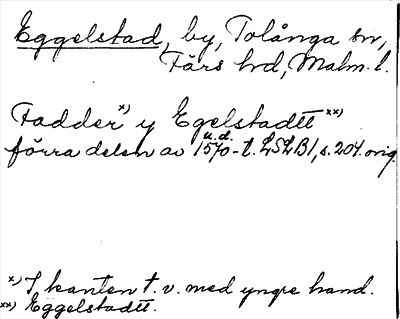 Eggelstad, by, Tolånga sn,
Färs hd, Malm. l.
Fadder x) y Egelstadtt xx)
u.d.
förra delen av 1570-t. LSLB1, s. 204. orig.
x) I kanten t. v. med yngre hand.
xx) Eggelstadtt.